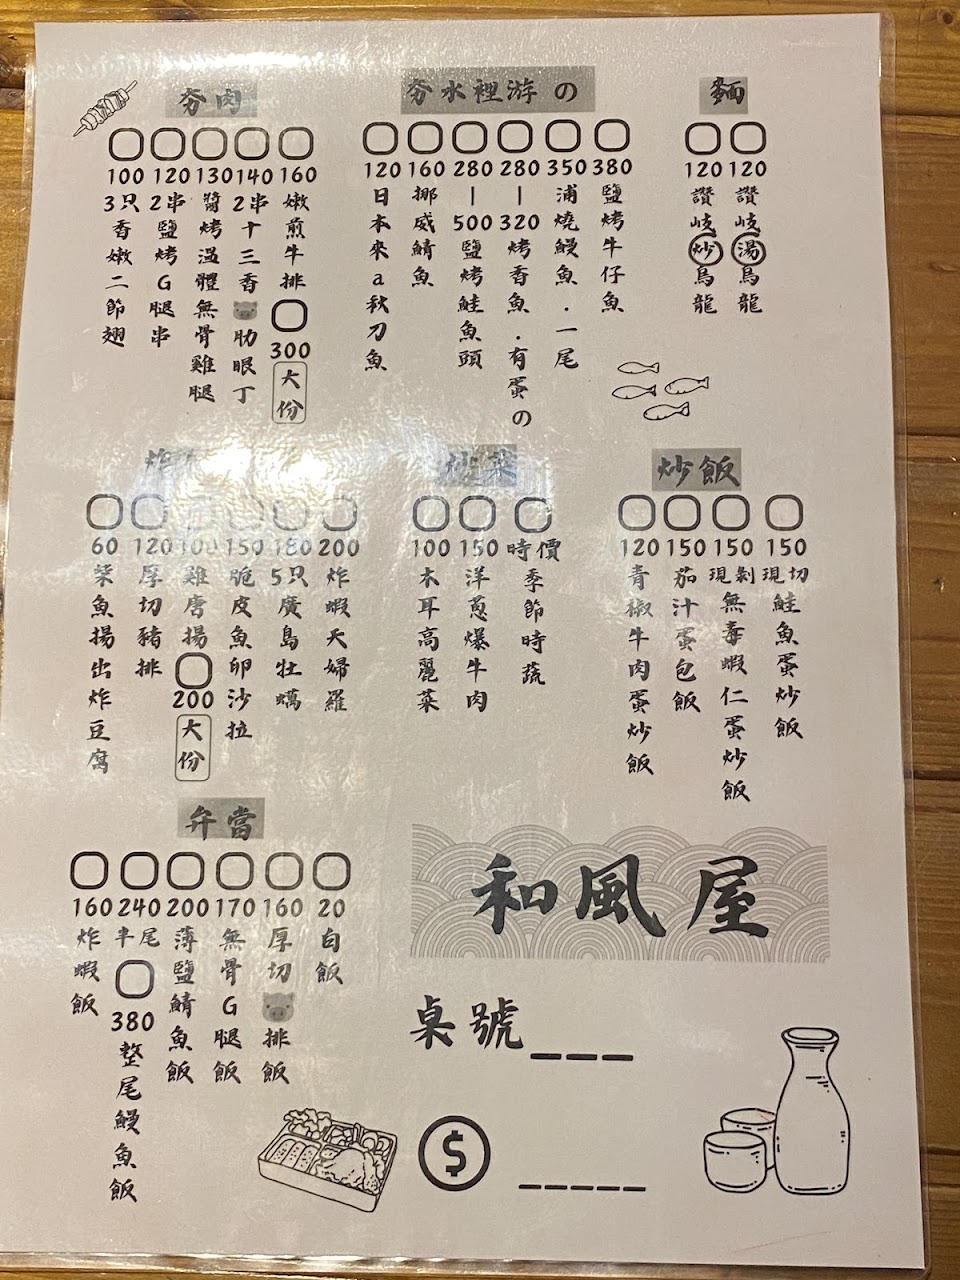 夯肉
100
3只香嫩二節翅
120
2串鹽烤G腿串
130
醬烤溫體無骨雞腿
140
2串十三香🐷肋眼丁
160
嫩煎牛排
300
大份
夯水裡游の
120
日本來a秋刀魚
160
挪威鯖魚
280
|
500
鹽烤鮭魚頭
280
|
320
烤香魚.有蛋の
350
浦燒鰻魚.一尾
380
鹽烤牛仔魚
麵
120
讚岐炒烏龍
120
讚岐湯烏龍
炸
60
柴魚揚出炸豆腐
120
厚切豬排
100
雞唐揚
200
大份
150
脆皮魚卵沙拉
180
5只廣島牡蠣
200
炸蝦天婦羅
炒菜
100
木耳高麗菜
150
洋蔥爆牛肉
時價
季節時蔬
炒飯
120
青椒牛肉蛋炒飯
150
茄汁蛋包飯
150
現剝無毒蝦仁蛋炒飯
150
現切鮭魚蛋炒飯
弁當
160
炸蝦飯
240
半尾
380
整尾鰻魚飯
200
薄鹽鯖魚飯
170
無骨G腿飯
160
厚切🐷排飯
20
白飯
和風屋
桌號___
$ _____